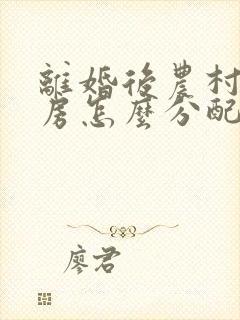 離婚後農村
房怎麼分配
廖君